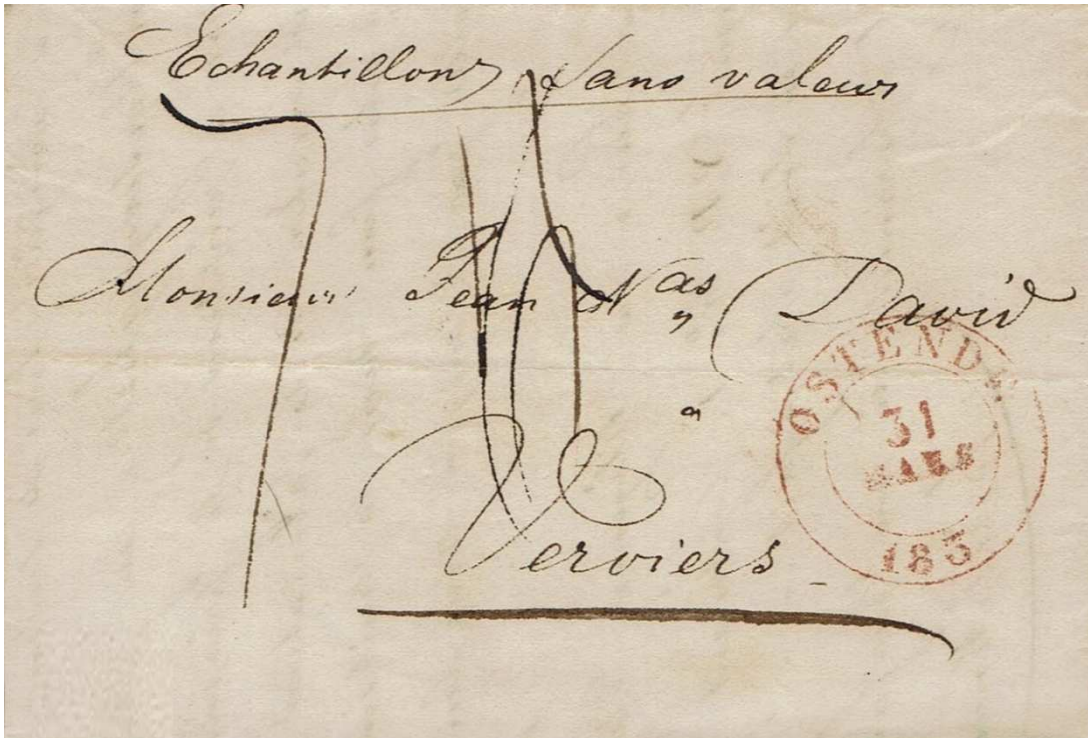 Echantillons sans valeur
Monsieur Jean N.as David
a
Verviers
OSTENDE
31
MARS
183